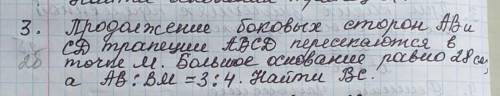 3. Продолжение боковых сторон AB и
CD трапеции ABCD пересекаются в
точке M. Большое основание равно 28 см,
а AB : BM = 3 : 4. Найти BC.